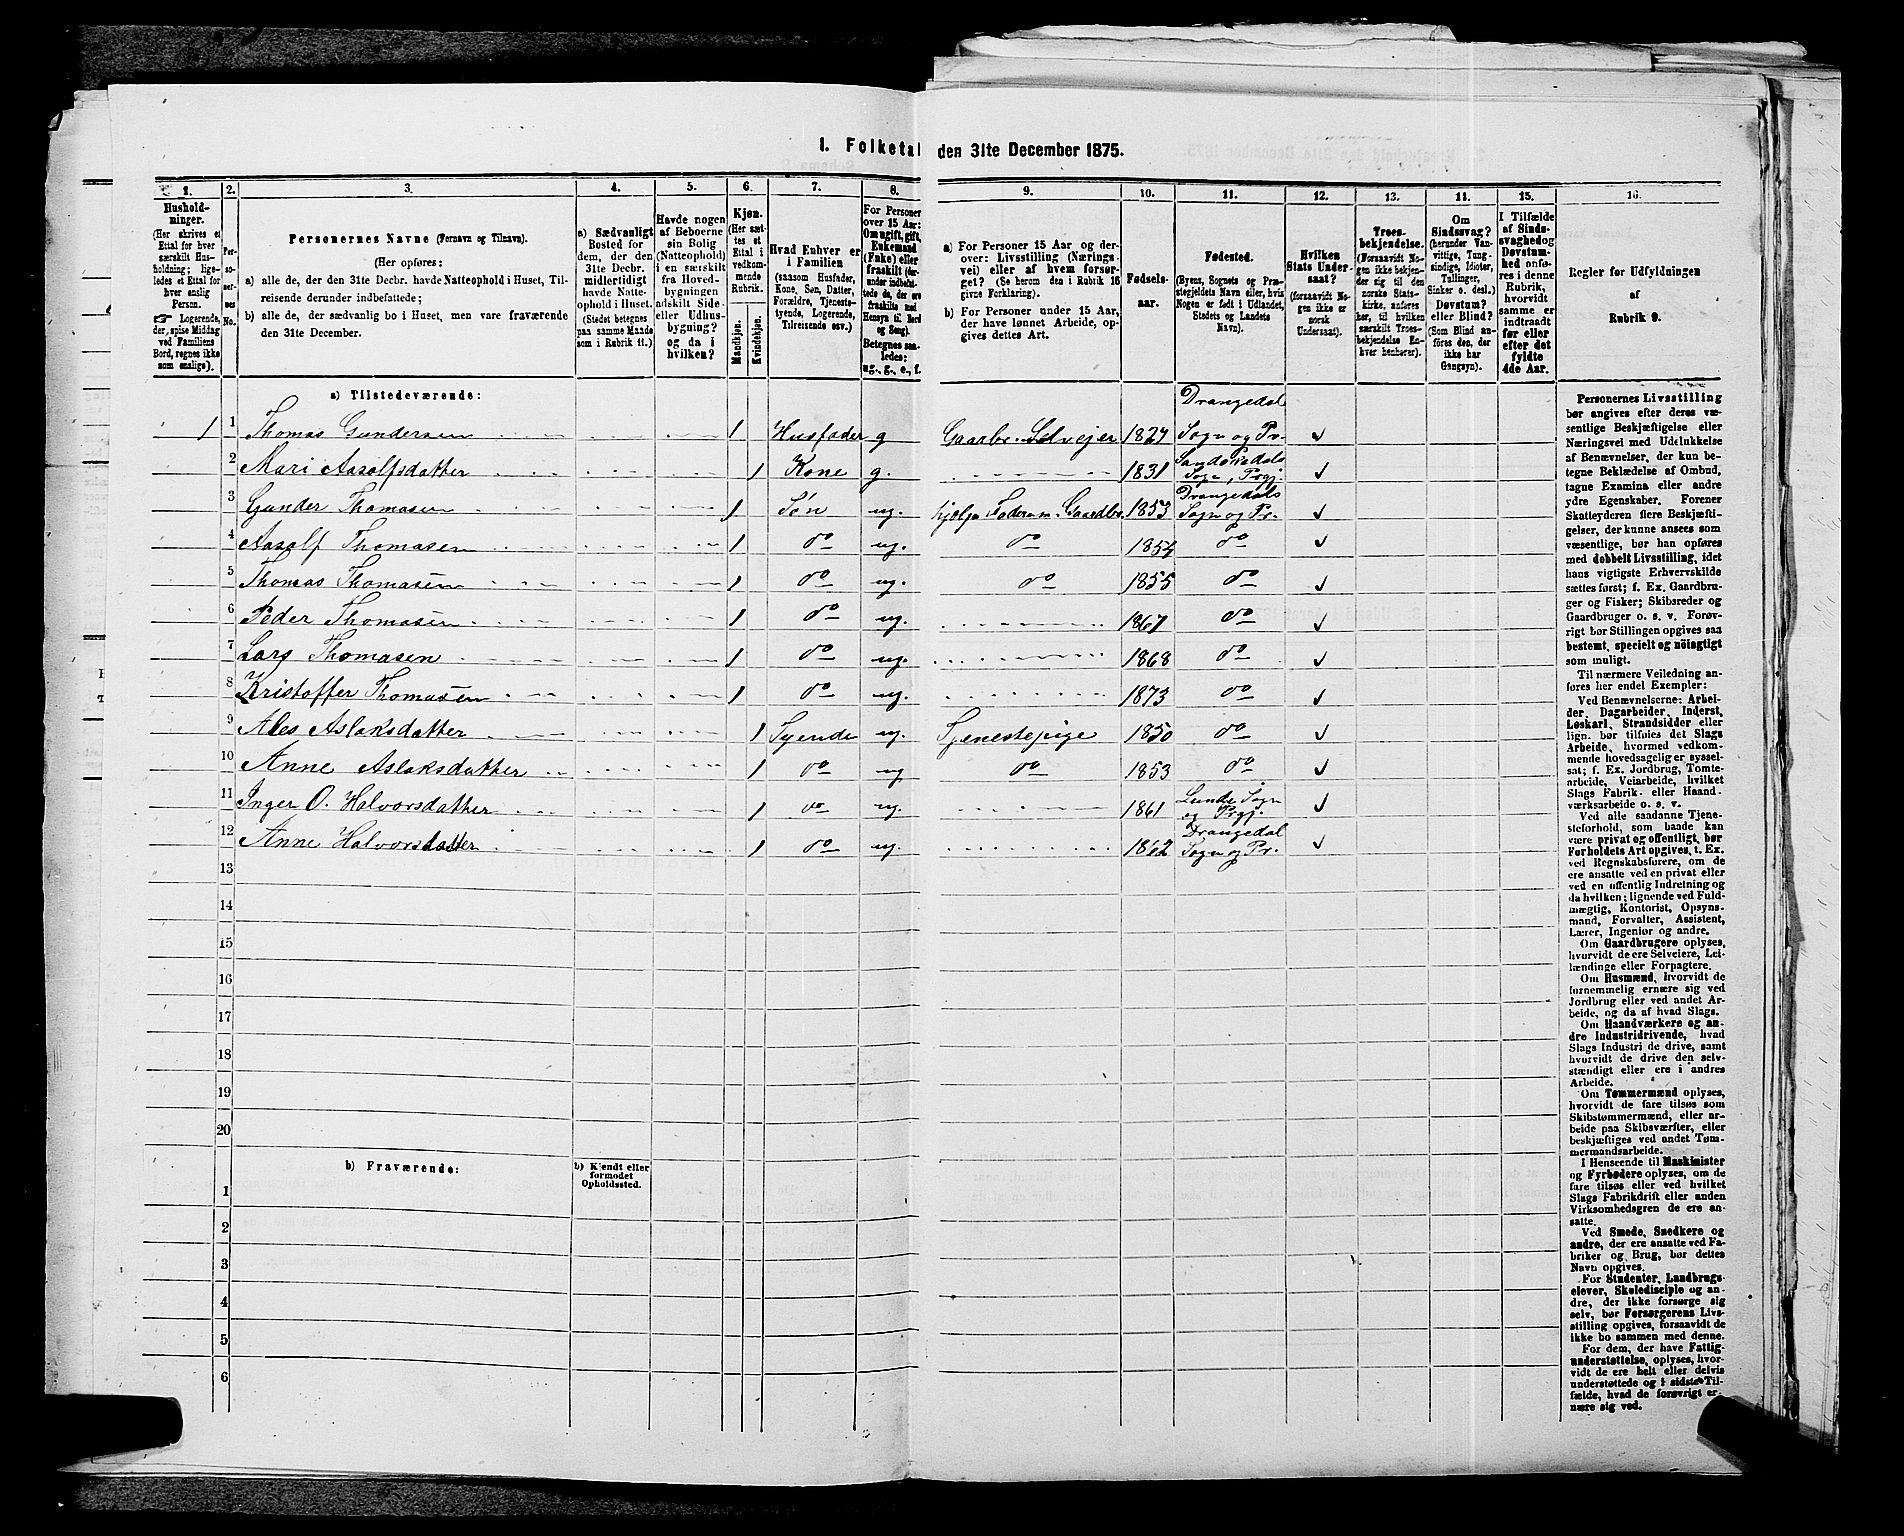 I. Folketal den 31te December 1875.
1.
Hushold-
ninger.
(Her skrives et
Ettal for hver
særskilt Hus-
holdning; lige-
ledes et Ettal for
hver enslig
Person.
☞ Logerende,
der spise Middag
ved Familiens
Bord, regnes ikke
som enslige).
2.
Per-
so-
ner-
nes
No.
3.
Personernes Navne (Fornavn og Tilnavn).
(Her opføres:
a) alle de, der den 31te Decbr. havde Natteophold i Huset, Til-
reisende derunder indbefattede;
b) alle de, der sædvanlig bo i Huset, men vare fraværende
den 31te December.
4.
a) Sædvanligt
Bosted for
dem, der den
31te Decbr.
midlertidigt
havde Natte-
ophold i Huset.
(Stedet betegnes
paa samme Maade
som i Rubrik 11.)
5.
Havde nogen
af Beboerne
sin Bolig
(Natteophold)
i en særskilt
fra Hoved-
bygningen
adskilt Side-
eller Udhus-
bygning?
og da i
hvilken?
6.
Kjøn.
(Her sæt-
tes et
Ettal i
vedkom-
mende
Rubrik.
Mandkjøn.
Kvindekjøn.
7.
Hvad Enhver er
i Familien
(saasom Husfader,
Kone, Søn, Datter,
Forældre, Tjeneste-
tyende, Logerende,
Tilreisende osv.)
8.
For Personer
over 15 Aar:
Om ugift, gift,
Enkemand
(Enke) eller
fraskilt (der-
under indbefat-
tede de, der ere
fraskilte med
Hensyn til Bord
og Seng).
Betegnes saa-
ledes:
ug., g., e., f.
9.
a) For Personer 15 Aar og der-
over: Livsstilling (Nærings-
vei) eller af hvem forsør-
get? (Se herom den i Rubrik 16
givne Forklaring).
b) For Personer under 15 Aar,
der have lønnet Arbeide, op-
gives dettes Art.
10.
Fødsels-
aar.
11.
Fødested.
(Byens, Sognets og Præ-
stegjeldets Navn eller, hvis
Nogen er født i Udlandet,
Stedets og Landets
Navn).
12.
Hvilken
Stats Under-
saat?
(forsaavidt No-
gen ikke er
norsk
Undersaat).
13.
Troes-
bekjendelse.
(Forsaavidt No-
gen ikke bekjen-
der sig til den
norske Stats-
kirke, anføres
her, til hvilken
særskilt Troes-
bekjendelse En-
hver henhører).
14.
Om
Sindssvag?
(herunder Van-
vittige, Tung-
sindige, Idioter,
Tullinger,
Sinker o. desl.)
Døvstum?
eller Blind?
(Som Blind an-
føres den, der
ikke har
Gangsyn).
15.
I Tilfælde
af Sinds-
svaghed og
Døvstum-
hed anfø-
res i denne
Rubrik,
hvorvidt
samme er
indtraadt
før eller
efter det
fyldte
4de Aar.
16.
Regler for Udfyldningen
af
Rubrik 9.
a) Tilstedeværende:
1 1 Thomas Gundersen 1 Husfader g Gaardbr. Selveier 1827 Drangedal Sogn og Pr. ✓
2 Mari Aasolfsdatter 1 Kone g. 1831 Sandøkedals Sogn, Prgj. ✓
3 Gunder Thomasen 1 Søn ug. hjælper Faderen m. Gaardbr. 1853 Drangedals Sogn og Pr. ✓
4 Aasolf Thomasen 1 do ug. do 1854 do ✓
5 Thomas Thomasen 1 do ug. do 1855 do ✓
6 Peder Thomasen 1 do ug. 1867 do ✓
7 Lars Thomasen 1 do ug. 1868 do ✓
8 Kristoffer Thomasen 1 do ug. 1873 do ✓
9 Ales Aslaksdatter 1 Tyende ug. Tjenestepige 1850 do ✓
10 Anne Aslaksdatter 1 do ug do 1853 do ✓
11 Inger O. Halvorsdatter 1 do ug. 1861 Lunde Sogn og Prgj. ✓
12 Anne Halvorsdatter 1 do ug. 1862 Drangedal Sogn og Pr. ✓
13
14
15
16
17
18
19
20
b) Fraværende:
b) Kjendt eller
formodet
Opholdssted.
1
2
3
4
5
6
Personernes Livsstilling
bør angives efter deres væ-
sentlige Beskjæftigelse eller
Næringsvei med Udelukkelse
af Benævnelser, der kun be-
tegne Beklædelse af Ombud,
tagne Examina eller andre
ydre Egenskaber. Forener
Skatteyderen flere Beskjæfti-
gelser, der kunne ansees som
væsentlige, bør han opføres
med dobbelt Livsstilling, idet
hans vigtigste Erhvervskilde
sættes først; f. Ex. Gaardbru-
ger og Fisker; Skibsreder og
Gaardbruger o. s. v. Forøv-
rigt bør Stillingen opgives saa
bestemt, specielt og nøiagtigt
som muligt.
Til nærmere Veiledning an-
føres her endel Exempler:
Ved Benævnelserne: Arbei-
der, Dagarbeider, Inderst,
Løskarl, Strandsidder eller
lign. bør tilføies det Slags
Arbeide, hvormed vedkom-
mende hovedsagelig er syssel-
sat; f. Ex. Jordbrug, Tomte-
arbeide, Veiarbeide, hvilket
Slags Fabrik- eller Haand-
værksarbeide o. s. v.
Ved alle saadanne Tjene-
steforhold, som baade kan
være privat og offentligt, bør
Forholdets Art opgives, t. Ex.
ved Regnskabsførere, om de
ere ansatte ved en privat eller
ved en offentlig Indretning og
da hvilken; lignende ved Fuld-
mægtig, Kontorist, Opsyns-
mand, Forvalter, Assistent,
Lærer, Ingeniør og andre.
Om Gaardbrugere oplyses,
hvorvidt de ere Selveiere, Lei-
lændinge eller Forpagtere.
Om Husmænd, hvorvidt de
fornemmelig ernære sig ved
Jordbrug eller ved andet Ar-
beide, og da af hvad Slags.
Om Haandværkere og an-
dre Industridrivende, hvad
Slags Industri de drive, samt
hvorvidt de drive den selv-
stændigt eller ere i andres
Arbeide.
Om Tømmermænd oplyses,
hvorvidt de fare tilsøs som
Skibstømmermænd, eller ar-
beide paa Skibsværfter, eller
beskjæftiges ved andet Tøm-
mermandsarbeide.
I Henseende til Maskinister
og Fyrbødere oplyses, om de
fare tilsøs eller ved hvilket
Slags Fabrikdrift eller anden
Virksomhedsgren de ere an-
satte.
Ved Smede, Snedkere og
andre, der ere ansatte ved Fa-
briker og Brug, bør dettes
Navn opgives.
For Studenter, Landbrugs-
elever, Skoledisciple og an-
dre, der ikke forsørge sig
selv, bør Forsørgerens Livs-
stilling opgives, forsaavidt de
ikke bo sammen med denne.
For dem, der have Fattig-
understøttelse, oplyses, hvor-
vidt de ere helt eller delvis
understøttede og i sidste Til-
fælde, hvad de forøvrigt er-
nære sig ved.